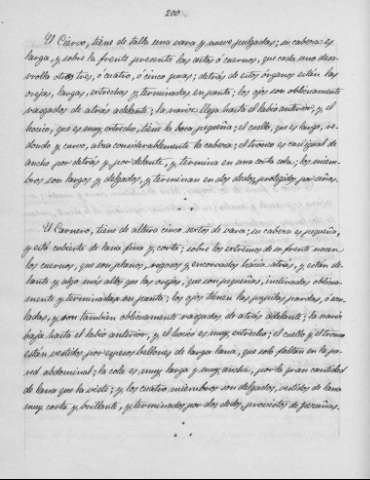 200
El Ciervo, tiene de talla una vara y nueve pulgadas; su cabeza es
larga, y sobre la frente presenta las astas ó cuernos, que cada uno desa-
rrolla otros tres, ó cuatro, ó cinco puas; detrás de estos órganos están las
orejas, largas, estrechas y terminadas en punta; los ojos son oblicuamente
rasgados de atrás adelante; la nariz llega hasta el labio anterior, y el
hocico, que es muy estrecho, tiene la boca pequeña; el cuello, que es largo, re-
dondo y curvo, alza considerablemente la cabeza; el tronco es casi igual de
ancho por detrás y por delante, y termina en una corta cola; los miem-
bros son largos y delgados, y terminan en dos dedos, protegidos por uñas.
El Carnero, tiene de altura cinco sextos de vara; su cabeza es pequeña,
y está cubierta de lana fina y corta; sobre los extremos de su frente nacen
los cuernos, que son planos, rugosos y encorvados hácia atrás, y están de-
lante y algo más altos que las orejas, que son pequeñas, inclinadas oblicua-
mente y terminadas en punta; los ojos tienen las pupilas pardas, ó azu-
ladas, y son tambien oblicuamente rasgados de atrás adelante; la nariz
baja hasta el labio anterior, y el hocico es muy estrecho; el cuello y el tronco
están vestidos por espesos bellones de larga lana, que solo faltan en la pa-
red abdominal; la cola es muy larga y muy ancha, por la gran cantidad
de lana que la viste; y los cuatro miembros son delgados, vestidos de lana
muy corta y brillante, y terminados por dos dedos, provistos de pezuñas.